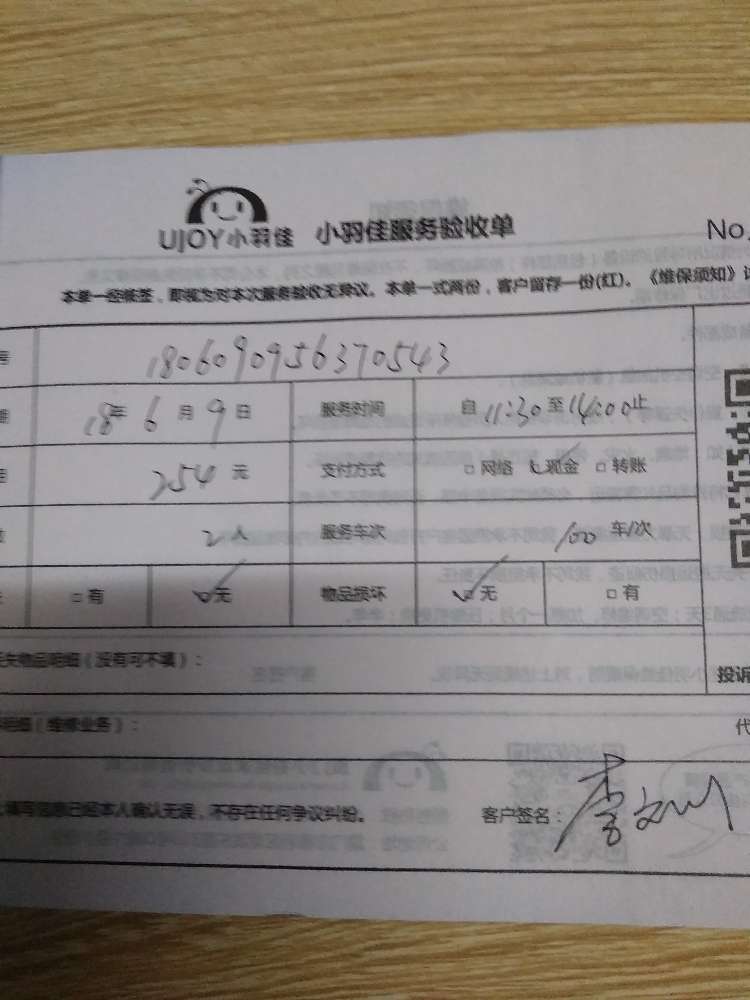 UJOY小羽佳 小羽佳服务验收单 No.
本单一经帐签，即视为对本次服务验收无异议。本单一式两份，客户留存一份(红)。《维保须知》
号 1806090956370543
期 18年 6月 9日 服务时间 自 11:30 至 14:00 止
254 元 支付方式 □ 网络 ✓ 现金 □ 转账
2 人 服务车次 100 车/次
□ 有 ☑ 无 物品损坏 ☑ 无 □ 有
失物品明细（没有可不填）： 投诉
明细（维修业务）： 代
填写信息已经本人确认无误，不存在任何争议纠纷。 客户签名：李文川